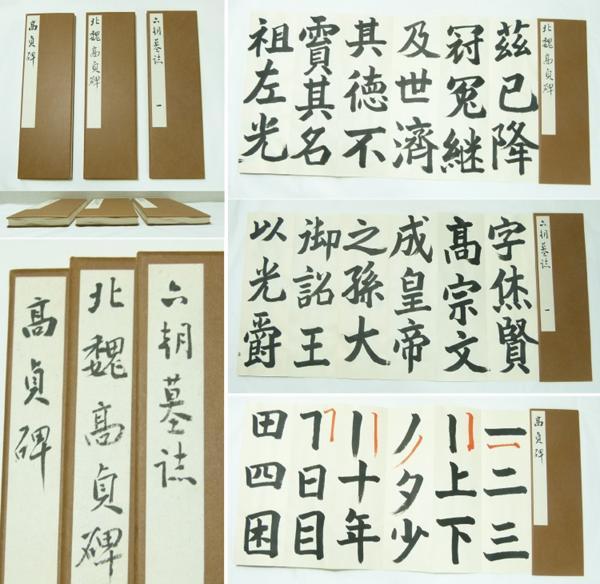 高貞碑
北魏高貞碑
六朝墓誌 一
高貞碑
北魏高貞碑
六朝墓誌
北魏高貞碑
茲已降
冠冕継
及世濟
其徳不
霣其名
祖左光
六朝墓誌 一
字休賢
高宗文
成皇帝
之孫大
御詔王
以光爵
高貞碑
一二三
丨上下
ノ夕少
丨十年
㇕日目
田四困